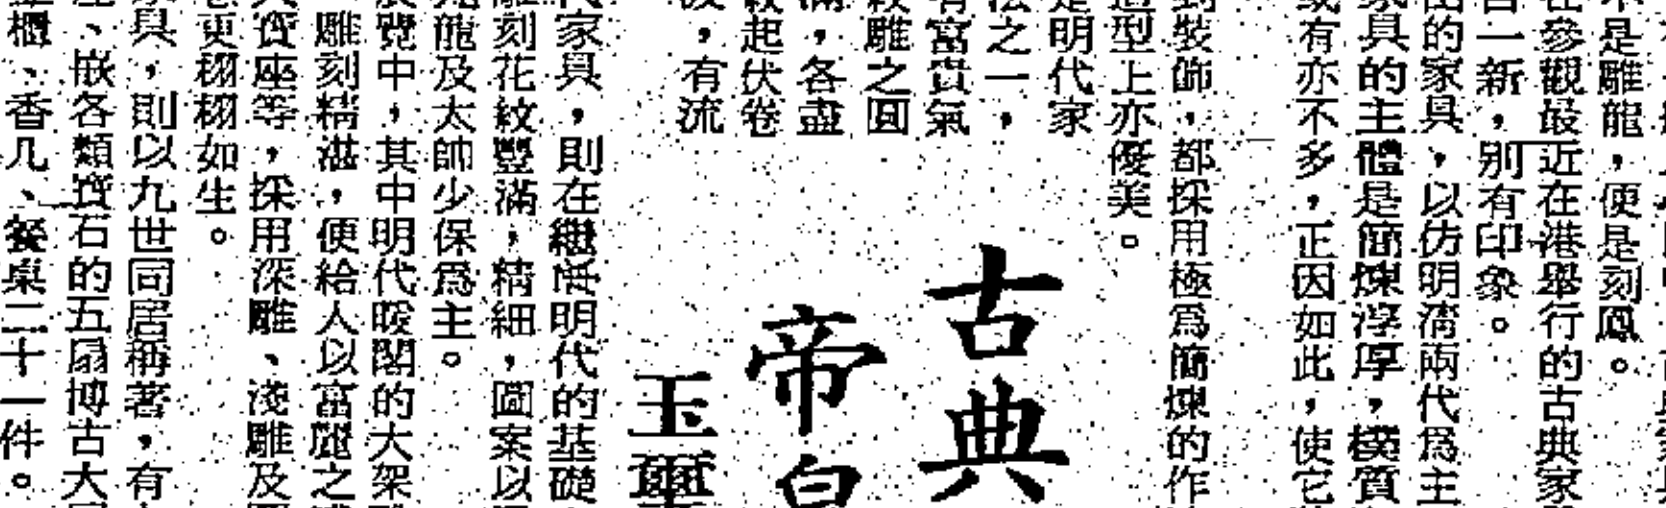 不是雕龍，便是刻鳳。
在參觀最近在港舉行的古典家
一新，別有印象。
的家具，以仿明清兩代爲主
家具的主體是簡煉淳厚，樸質
或有亦不多，正因如此，使它
到裝飾，都採用極爲簡煉的作
造型上亦優美。
是明代家
法之一，
有富貴氣
紋雕之圓
滿，各盡
紋起伏卷
波，有流
古典
帝皇
玉璽
代家具，則在繼承明代的基礎
雕刻花紋豐滿，精細，圖案以
龍及太師少保爲主。
展覽中，其中明代暖閣的大架
雕刻精湛，便給人以富麗之
寶座等，採用深雕、淺雕及
更栩栩如生。
家具，則以九世同居稱著，有
、嵌各類寶石的五扇博古大
櫃、香几、餐桌二十一件。